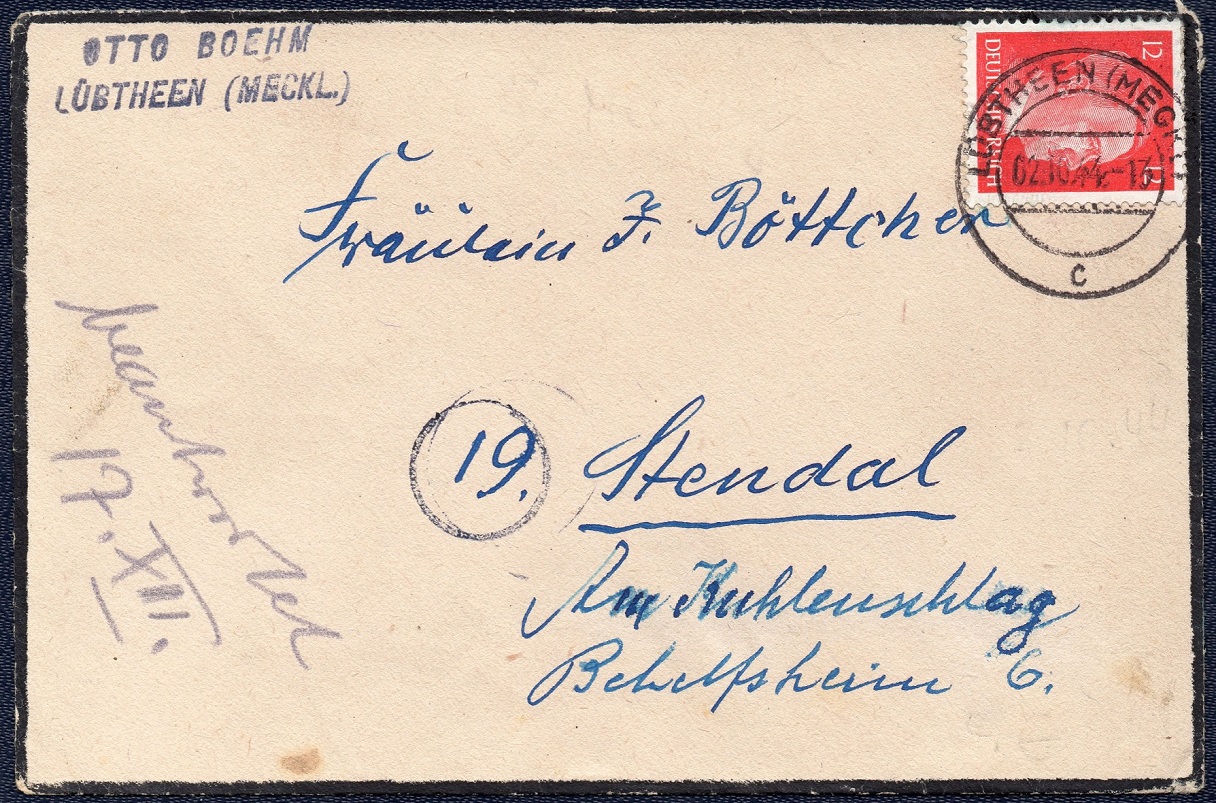 OTTO BOEHM
LÜBTHEEN (MECKL.)
DEUTSCHES REICH
12
12
LÜBTHEEN (MECKL)
02.10.44.-13
c
Fräulein J. Böttcher
19. Stendal
Am Kuhlenschlag
Behelfsheim 6.
beantwortet
17. XII.